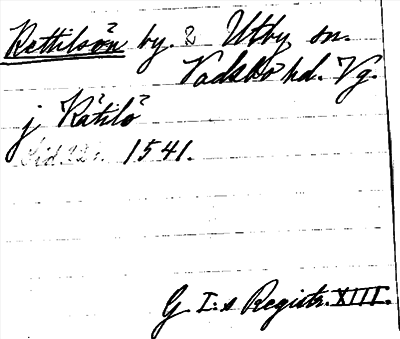 Kettilsön by. i Utby sn.
Vadsbo hd. Vg.
j Kätilö
Sid. 1541.
G. I:s Registr. XIII.